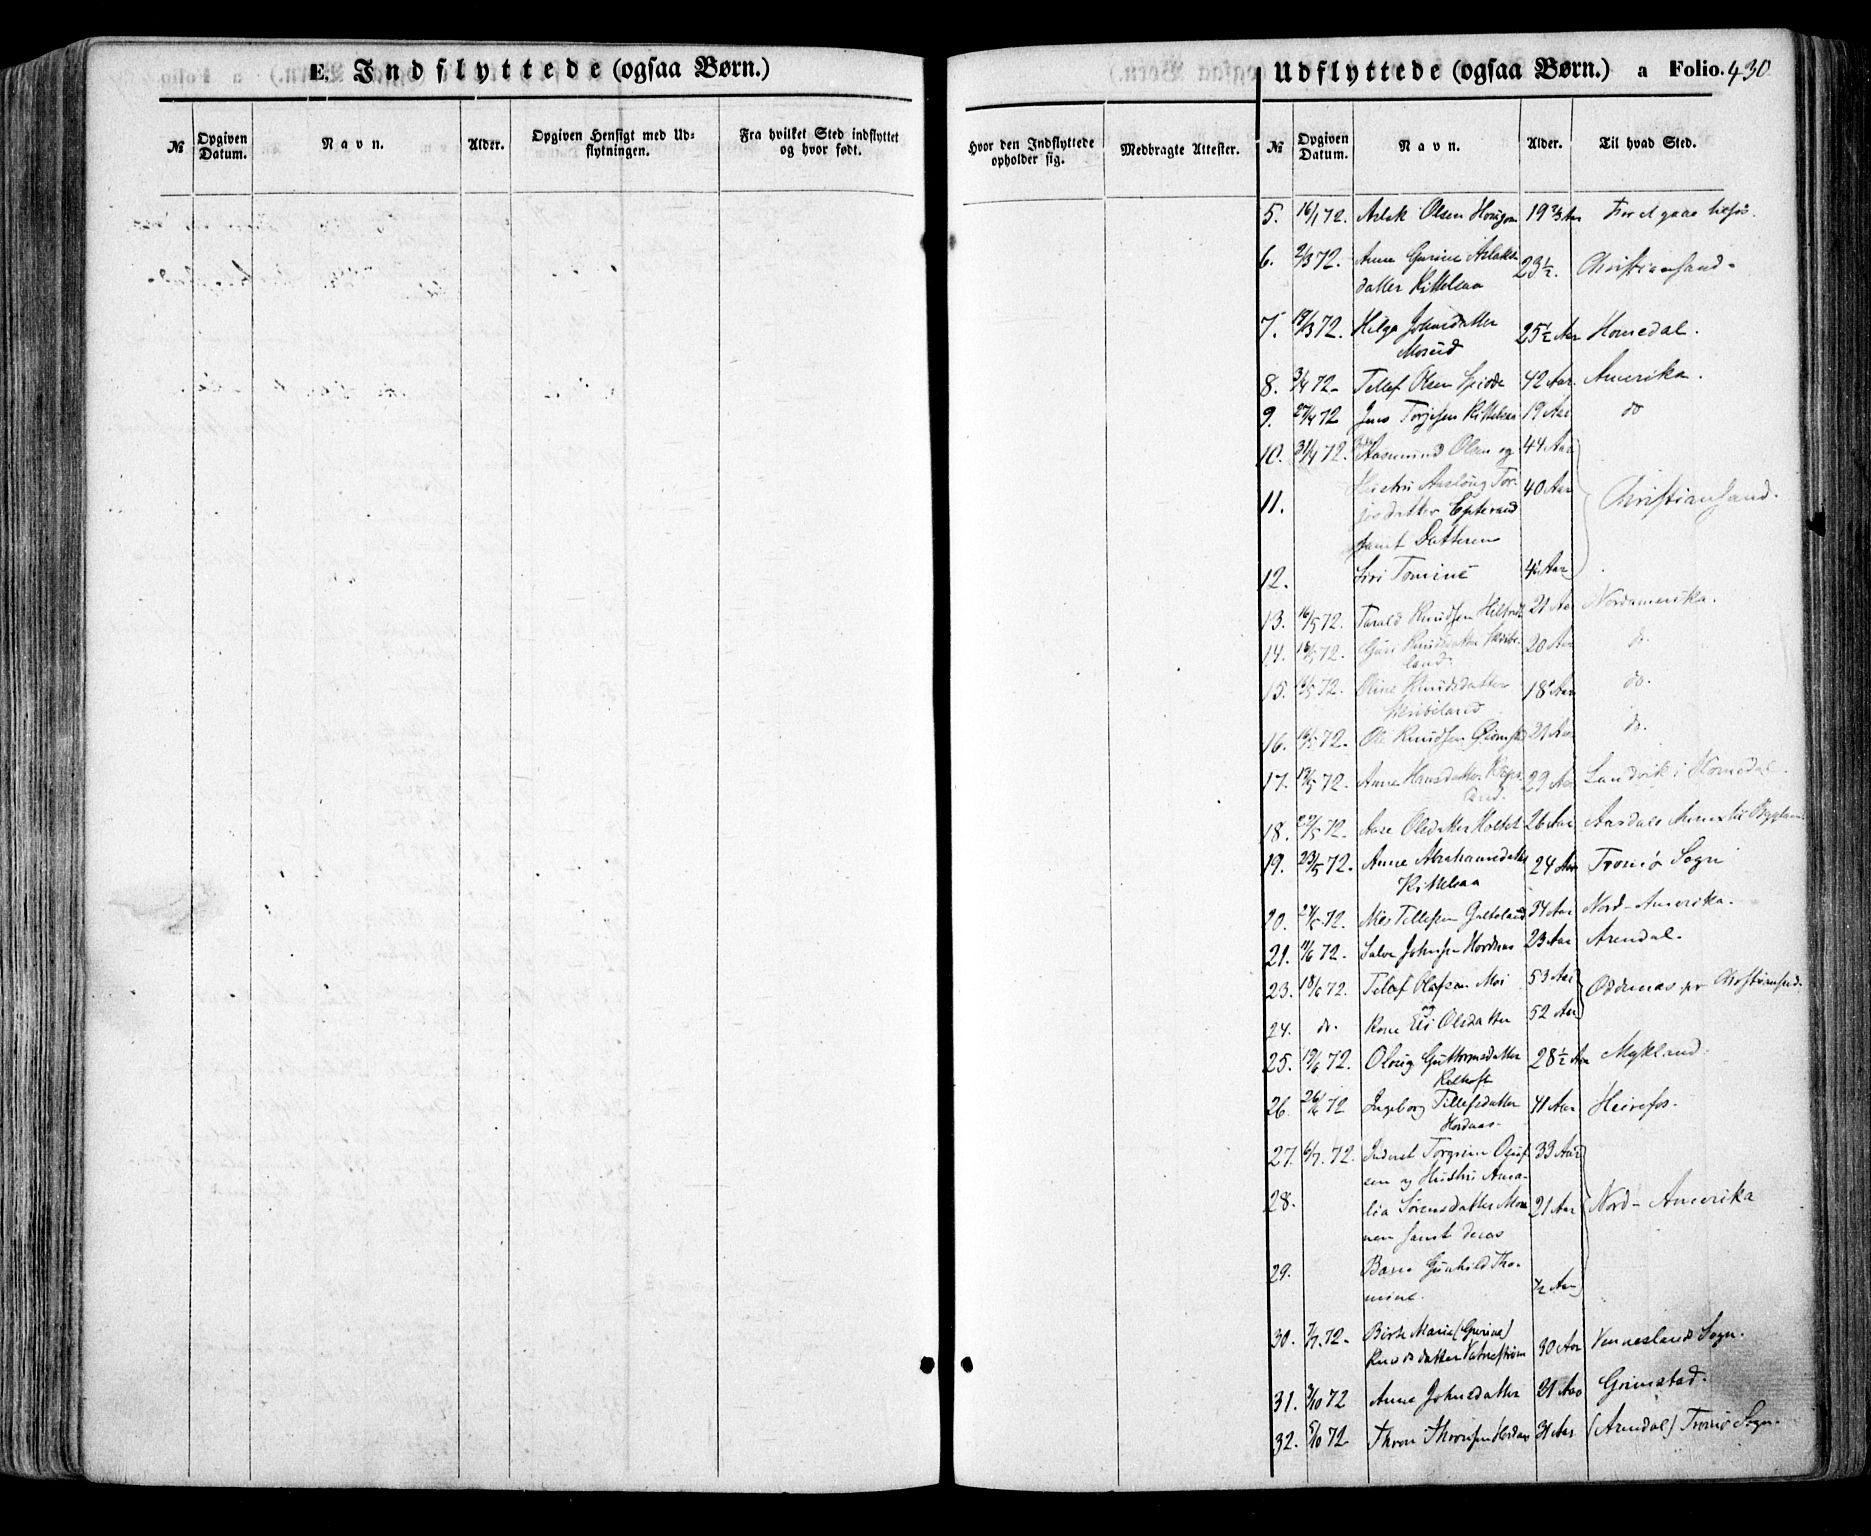 E. Indflyttede (ogsaa Børn.)
Udflyttede (ogsaa Børn.) a Folio. 430
№ Opgiven Datum. Navn. Alder. Opgiven Hensigt med Udflytningen. Fra hvilket Sted indflyttet og hvor født.
Hvor den Indflyttede opholder sig. Medbragte Attester. № Opgiven Datum. Navn. Alder. Til hvad Sted.
5. 16/1 72. Aslak Olsen 19 Aar
6. 2/3 72. Anne Gurine Aslaks- 23½. Christiansand
datter Kittelsaa
7. 19/3 72. Helga Johnsdatter 25½ Aar Homedal.
Mosud
8. 3/4 72 Tellef Olsen 42 Aar. Amerika.
9. 27/4 72 Jens Torjesen Kittelsaa 19 Aar do
10. 31/4 72. Aasmund Olsen og 44 Aar
11. Hustru Aaslaug Tor- 40 Aar Christiansand.
datter
samt Datteren
12. Siri Tomine 4 Aar
13. 16/5 72. Tarald Knudsen 21 Aar Nordamerika.
14. 16/5 72. Guri Knudsdatter Skribe- 20 Aar do
land
15. 16/5 72. Oline Knudsdatter 18 Aar do.
Skribeland
16. 16/5 72. Ole Knudsen 21 Aar do.
17. 19/5 72. Anne Hansdatter 29 Aar Landvik i Homedal.
18. 22/5 72 Aase Olsdatter 26 Aar Aardals Annex til Bygland
19. 23/5 72. Anne Abrahamsdatter 24 Aar Tromø Sogn
Kittelsaa
20. 72. Nils Tellefsen 34 Aar Nord-Amerika.
21. 11/6 72. Salve Johnsen Hordnæs 23 Aar Arendal.
23. 18/6 72. Tellef Olafsen Moi 53 Aar Oddernæs pr Christiansand.
og
24. do. Kone Eli Olsdatter 52 Aar
25. 19/6 72. Olaug Guttormsdatter 28½ Aar Mykland.
26. 26/6 72 Ingeborg Tellefsdatter 41 Aar Heirefos.
Hordnæs
27. 6/7. 72. Inderst Torgrim 33 Aar
sen og Hustru Ama-
28. lia Sørensdatter 21 Aar Nord-Amerika
samt deres
29. Barn Gunhild Tho-
mine. ½ Aar
30. 7/7. 72 Birte Marie (Gurine)
Knudsdatter Vatnestrøm 30 Aar Venneslands Sogn.
31. 9/10 72 Anne Johnsdatter 21 Aar Grimstad.
32. 5/10 72 Thron Thronsen 31 Aar (Arendal) Tromø Sogn